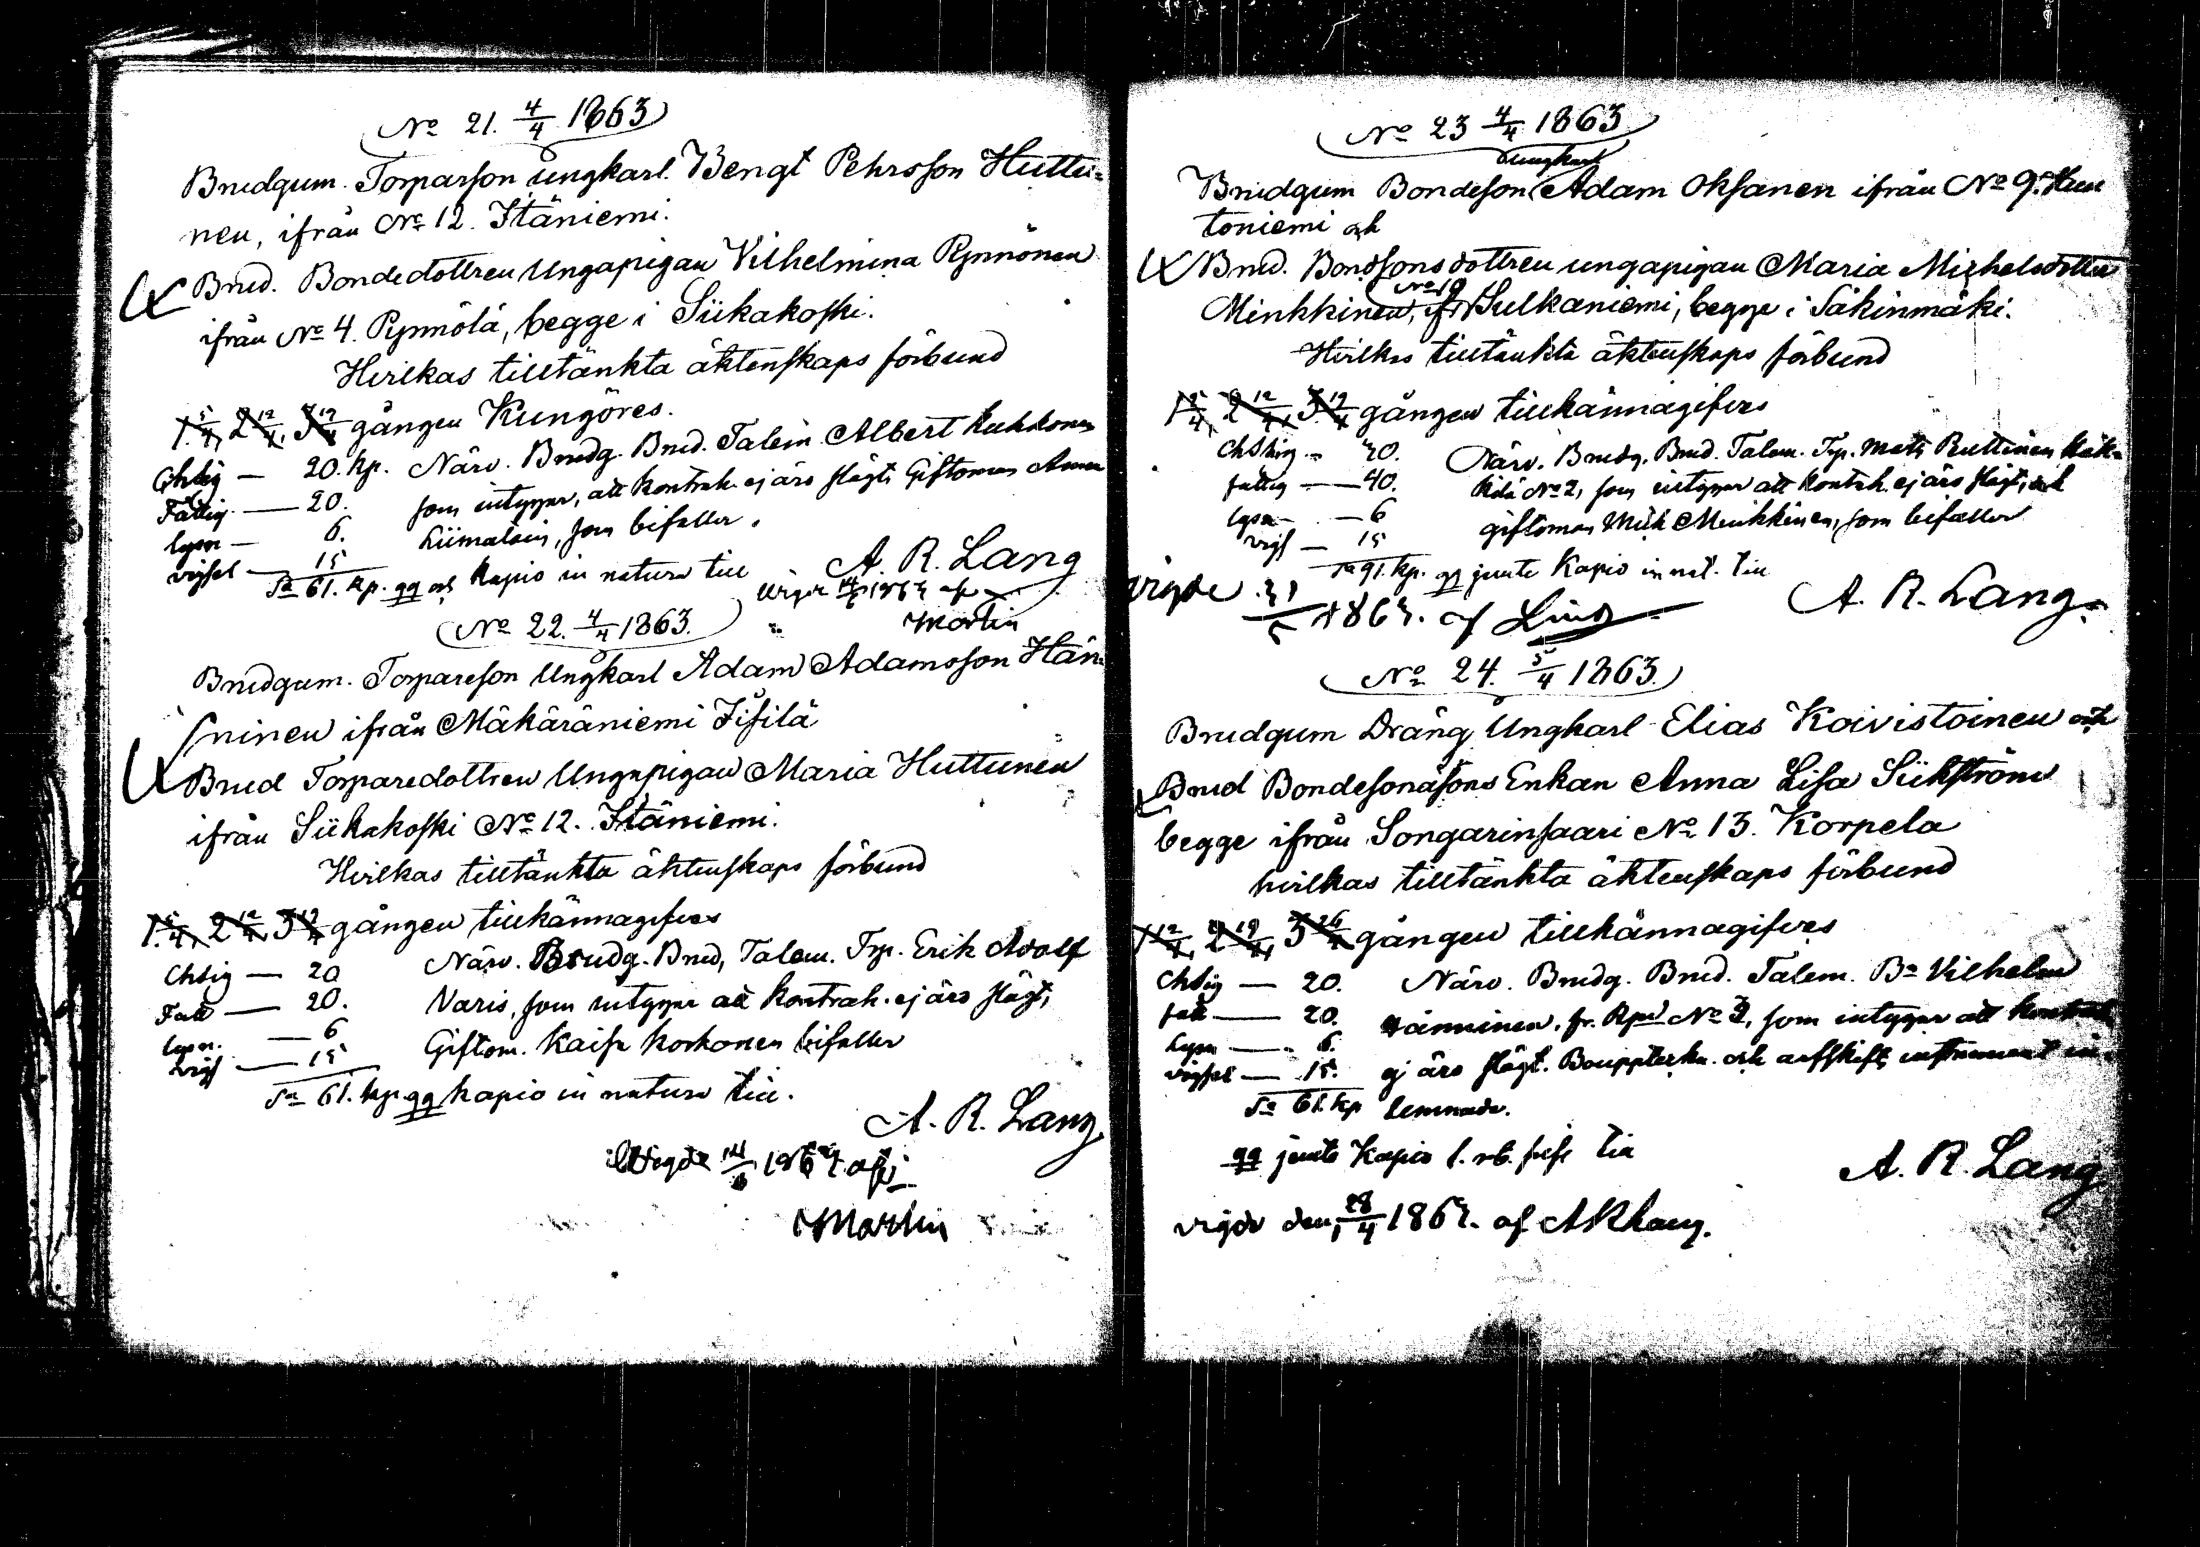 No 21. 4/4 1863
Brudgum. Torparson ungkarl Bengt Pehrsson Huttu-
nen, ifrån No 12. Itäniemi.
Brud. Bondedottren Ungapigan Vilhelmina Pynnönen
ifrån No 4. Pynnölä, begge i Siikakoski.
Hvilkas tilltänkta äktenskaps förbund
1. 5/4, 2 12/4, 3 19/4 gången Kungöres.
Chtig — 20. kp. Närv. Brudg. Brud. Talem. Albert
Fattig — 20. som intygar, att kontrah. ej äro slägt, Giftoman
lysn — 6. Liimatain, som bifaller.
vigsel — 15
Sa 61. kp. qq och Kapio in natura till
A. R. Lang
Martin
No 22. 4/4 1863.
Brudgum. Torpareson Ungkarl Adam Adamsson Hän-
ninen ifrån Mäkäräniemi
Brud Torparedottren Ungapigan Maria Huttunen
ifrån Siikakoski No 12. Itäniemi.
Hvilkas tilltänkta äktenskaps förbund
1. 5/4, 2 12/4, 3 19/4 gången tillkännagifves
Chtig — 20 Närv. Brudg. Brud, Talem. Trp. Erik Adolf
Fatt — 20. Varis, som intygar att kontrah. ej äro slägt,
lysn. — 6 Giftom. Kaisa Korhonen bifaller
vigs — 15
Sa 61. kp. qq kapio in natura till.
A. R. Lang
Vigde 14/6 1863 af
Martin
No 23 4/4 1863
ungkarl
Brudgum Bondeson Adam Oksanen ifrån No 9. Kun
toniemi och
Brud. Bondsonsdottren ungapigan Maria Michelsdotter
No 10
Minkkinen, ifr Sulkaniemi, begge i Säkinmäki.
Hvilkas tilltänkta äktenskaps förbund
1 5/4, 2 12/4, 3 19/4 gången tillkännagifves
Chtig — 40. Närv. Brudg. Brud. Talem. Trp. Mats Ruttinen
fattig — 40. No 2, som intygar att kontrah. ej äro slägt, och
lysn — 6 giftoman Mich Minkkinen, som bifaller
vigs — 15
qq jemte Kapio in nat. till
A. R. Lang.
vigde 31/5 1863. af Lind
No 24. 5/4 1863.
Brudgum Dräng Ungkarl Elias Koivistoinen och
Brud Bondesonasons Enkan Anna Lisa Siikström
begge ifrån Songarinsaari No 13. Korpela
hvilkas tilltänkta äktenskaps förbund
1 12/4, 2 19/4, 3 26/4 gången tillkännagifves
Chtig — 20. Närv. Brudg. Brud. Talem. Bn Vilhelm
fatt — 20. Jänninen, fr. No 3, som intygar att kontrah
Lysn — 6. ej äro slägt. Bouppteckn. och arfskifts instrument in-
vigsel — 15. lemnade.
Sa 61. kp
qq jemte Kapio till
A. R. Lang
vigde den 28/4 1863. af ARLang.